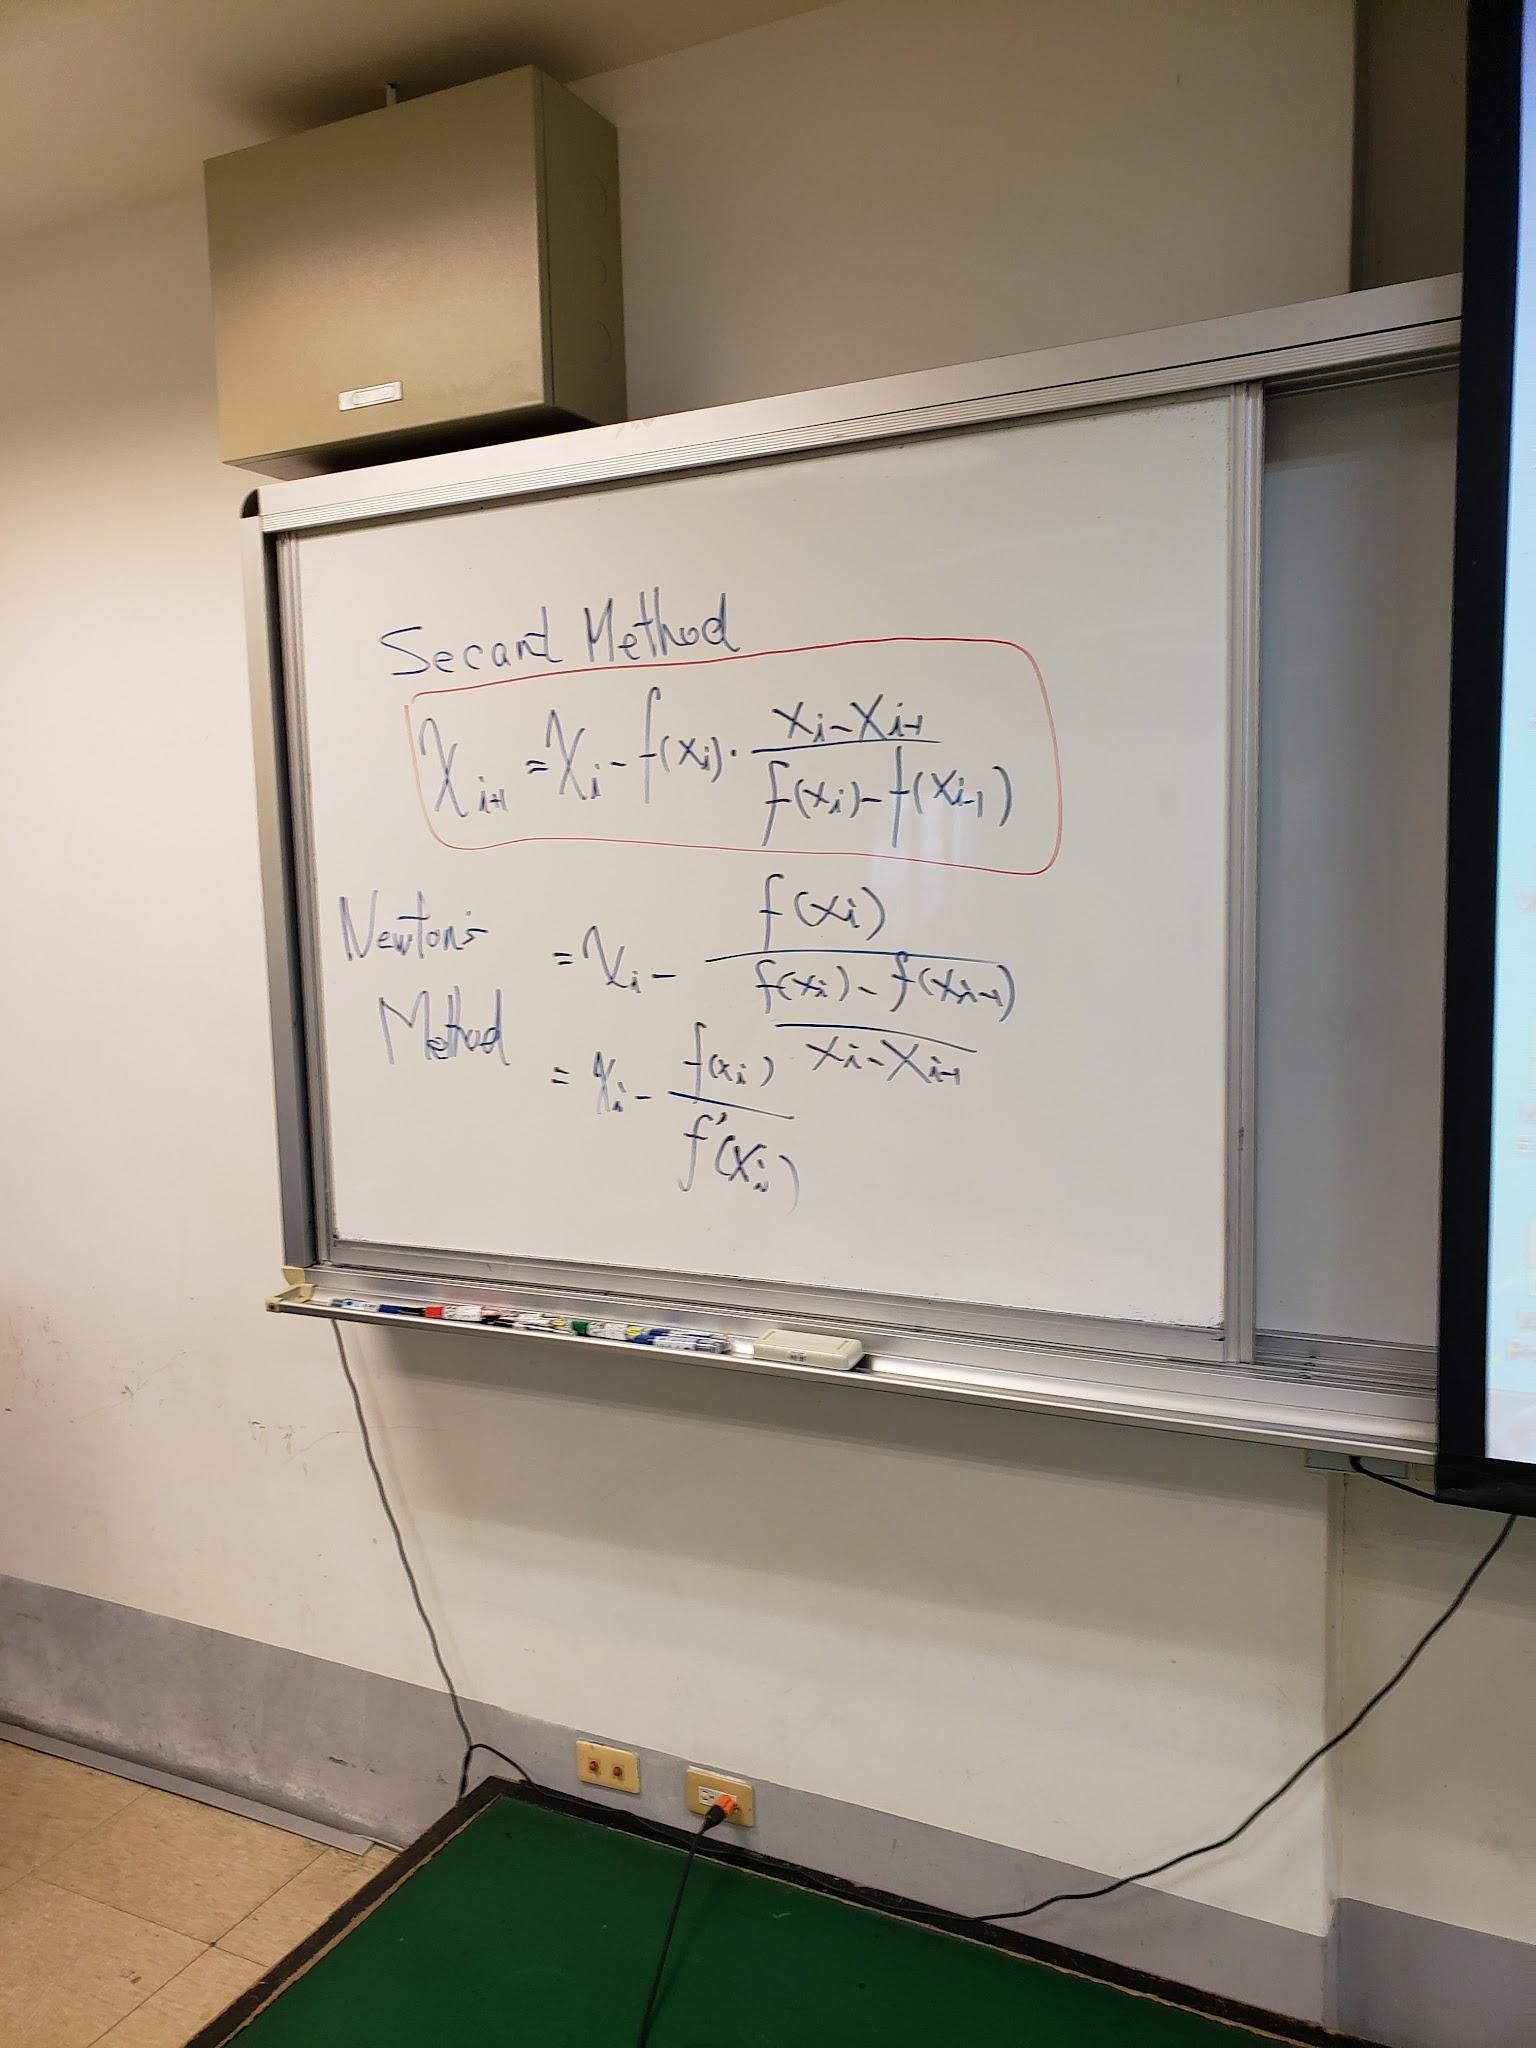 Secant Method
x_{i+1} = x_i - f(x_i) · \frac{x_i - x_{i-1}}{f(x_i) - f(x_{i-1})}
Newton's Method
= x_i - \frac{f(x_i)}{\frac{f(x_i) - f(x_{i-1})}{x_i - x_{i-1}}}
= x_i - \frac{f(x_i)}{f'(x_i)}